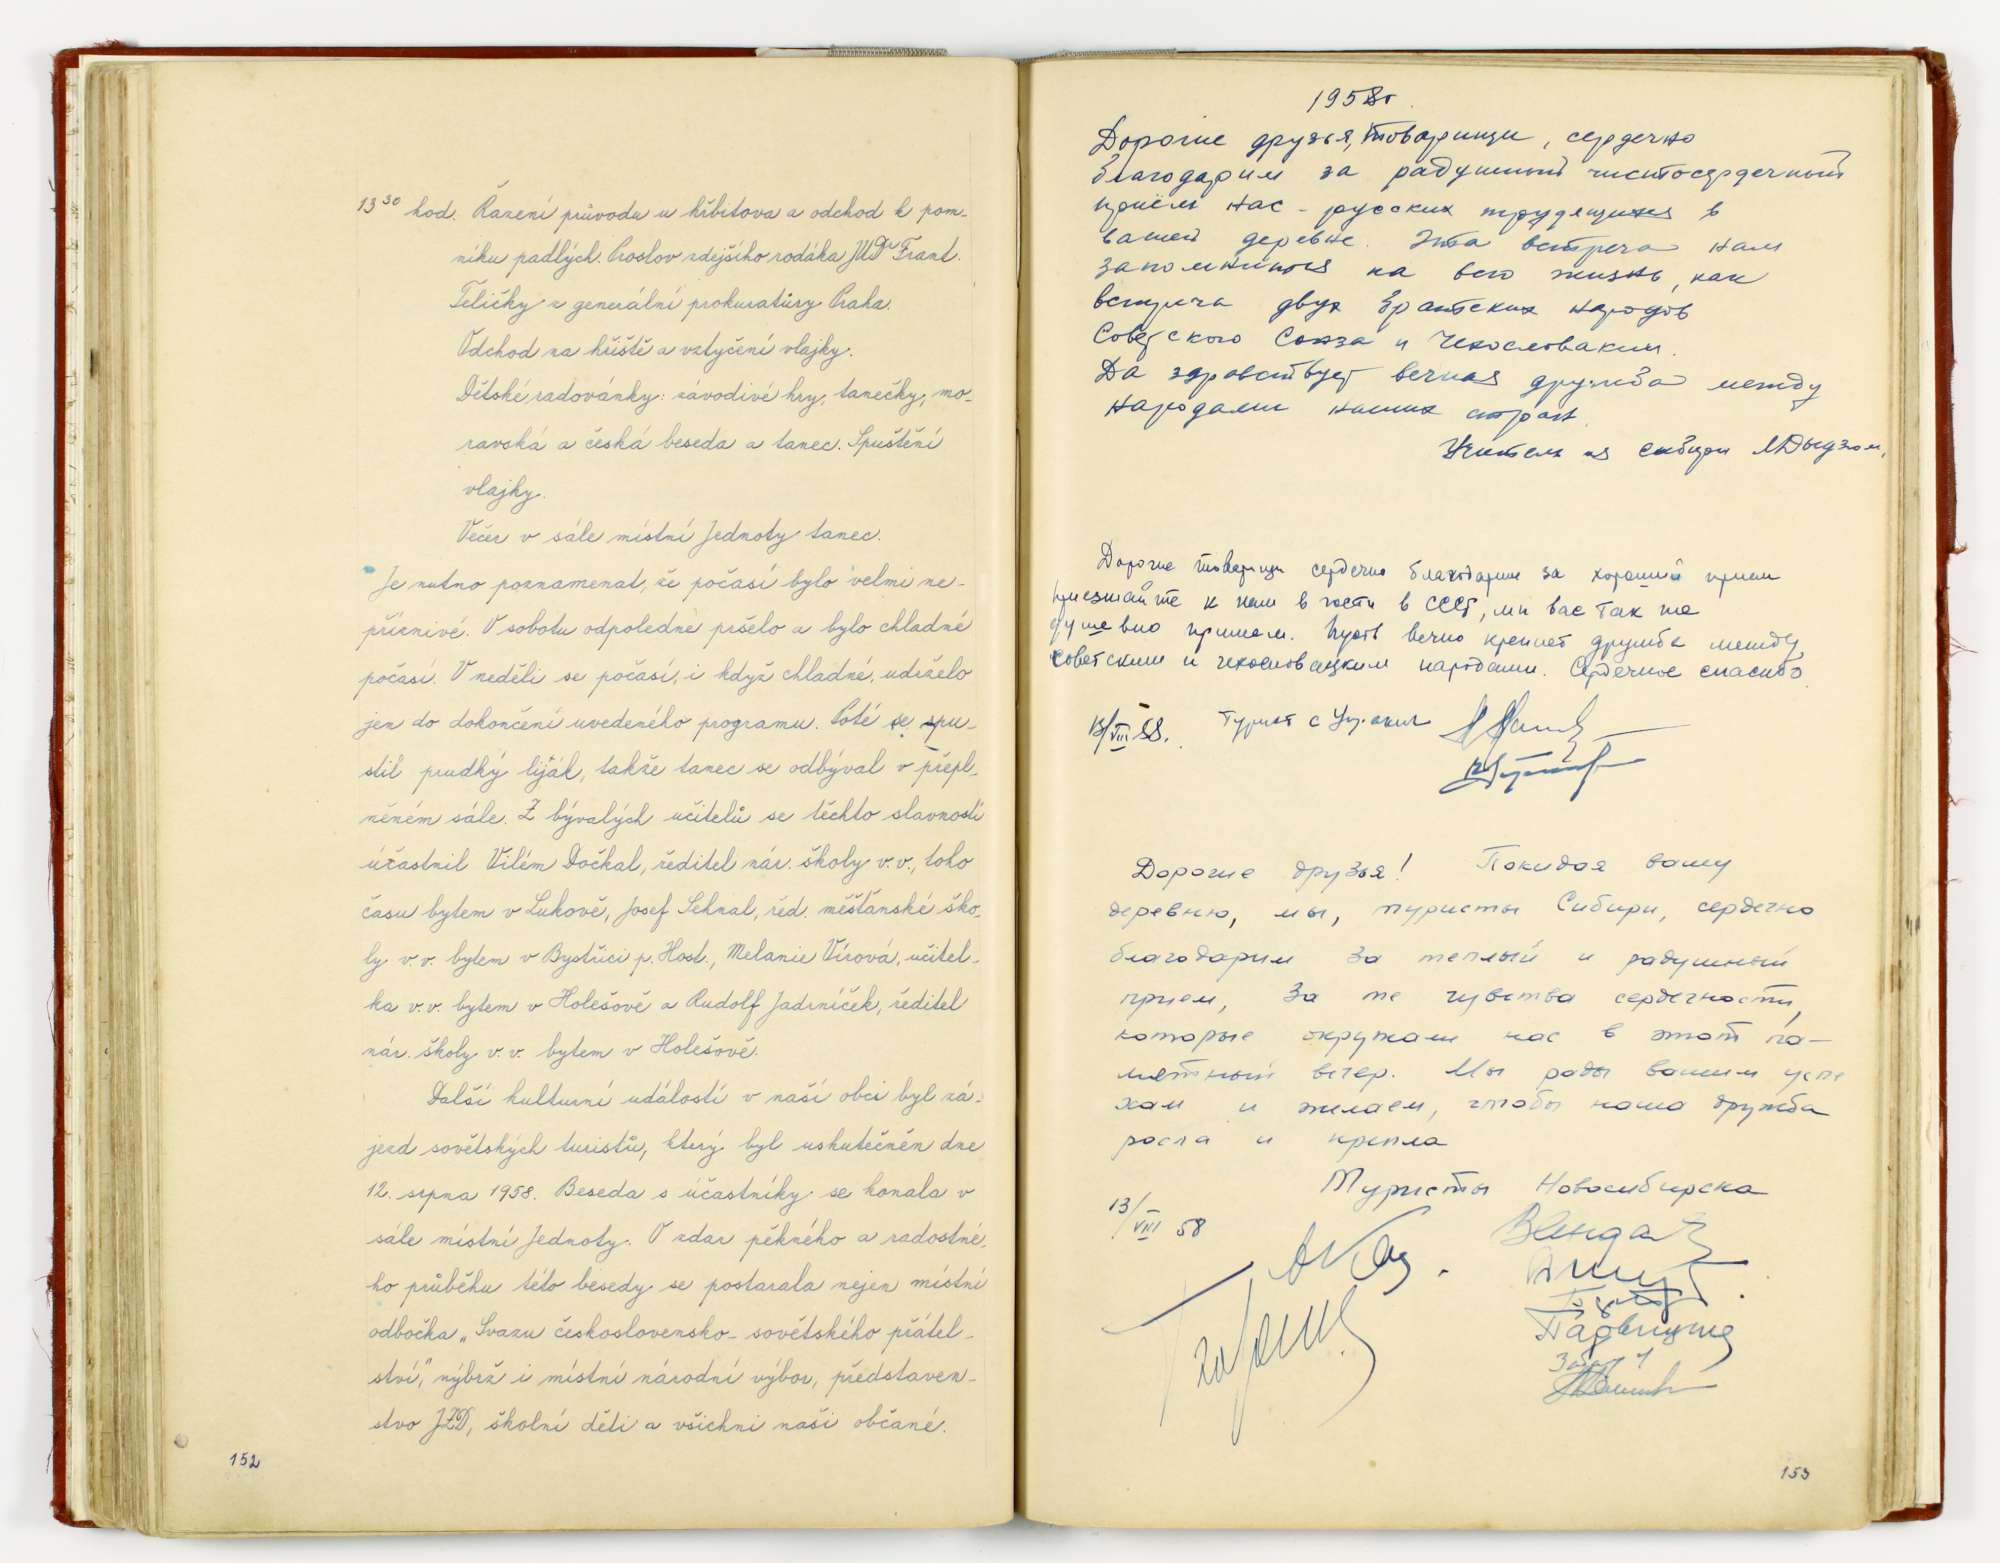 13 30 hod. Řazení průvodu u hřbitova a odchod k pom-
níku padlých. Proslov zdejšího rodáka JUDr Frant.
Teličky z generální prokuratury Praha.
Odchod na hřiště a vztyčení vlajky.
Dětské radovánky: závodivé hry, tanečky, mo-
ravská a česká beseda a tanec. Spuštění
vlajky.
Večer v sále místní Jednoty tanec.
Je nutno poznamenat, že počasí bylo velmi ne-
příznivé. V sobotu odpoledne pršelo a bylo chladné
počasí. V neděli se počasí, i když chladné, udrželo
jen do dokončení uvedeného programu. Poté se spu-
stil prudký liják, takže tanec se odbýval v přepl-
něném sále. Z bývalých učitelů se těchto slavností
účastnil Vilém Dočkal, ředitel nár. školy v.v., toho
času bytem v Lukově, Josef Sehnal, řed. měšťanské ško-
ly v.v. bytem v Bystřici p. Host., Melanie Vírová, učitel-
ka v.v. bytem v Holešově a Rudolf Jadrníček, ředitel
nár. školy v.v. bytem v Holešově.
Další kulturní událostí v naší obci byl zá-
jezd sovětských turistů, který byl uskutečněn dne
12. srpna 1958. Beseda s účastníky se konala v
sále místní Jednoty. O zdar pěkného a radostné-
ho průběhu této besedy se postarala nejen místní
odbočka „Svazu československo-sovětského přátel-
ství," nýbrž i místní národní výbor, představen-
stvo JZD, školní děti a všichni naši občané.
152
1958г.
Дорогие друзья, товарищи, сердечно
благодарим за радушный чистосердечный
приём нас - русских трудящихся в
вашей деревне. Эта встреча нам
запомнится на всю жизнь, как
встреча двух братских народов
Советского Союза и Чехословакии.
Да здравствует вечная дружба между
народами наших стран.
Учитель из Сибири
Дорогие товарищи сердечно благодарим за хороший прием
приезжайте к нам в гости в СССР, мы вас так же
душевно примем. Пусть вечно крепнет дружба между
советским и чехословацким народами. Сердечное спасибо
13/VIII 58. Турист с Украины
Дорогие друзья! Покидая вашу
деревню, мы, туристы Сибири, сердечно
благодарим за теплый и радушный
прием, за те чувства сердечности,
которые окружали нас в этот па-
мятный вечер. Мы рады вашим успе
хам и желаем, чтобы наша дружба
росла и крепла
Туристы Новосибирска
13/VIII 58
153